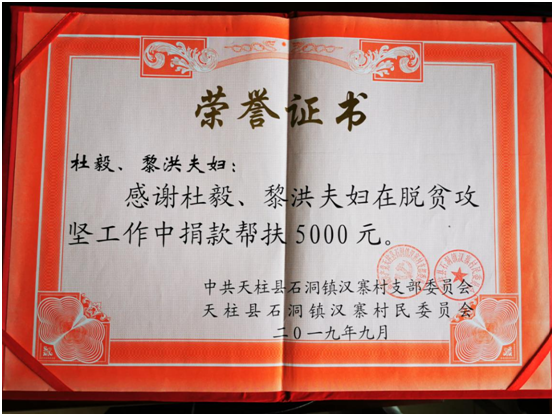 荣誉证书
杜毅、黎洪夫妇：
感谢杜毅、黎洪夫妇在脱贫攻
坚工作中捐款帮扶5000元。
中共天柱县石洞镇汉寨村支部委员会
天柱县石洞镇汉寨村民委员会
二0一九年九月